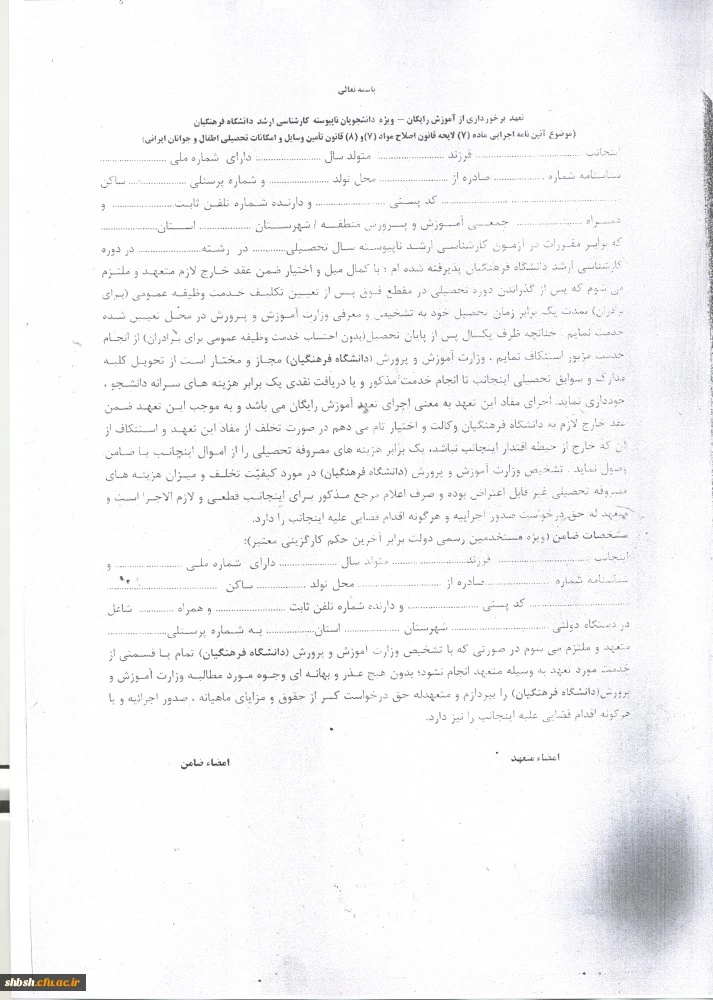 باسمه تعالی
تعهد برخورداری از آموزش رایگان – ویژه دانشجویان ناپیوسته کارشناسی ارشد دانشگاه فرهنگیان
(موضوع آئین نامه اجرایی ماده (۷) لایحه قانون اصلاح مواد (۷)و (۸) قانون تأمین وسایل و امکانات تحصیلی اطفال و جوانان ایرانی)
اینجانب ........................ فرزند .................. متولد سال .................. دارای شماره ملی ..................
شناسنامه شماره .................. صادره از .................. محل تولد .................. و شماره پرسنلی .................. ساکن
.................. کد پستی .................. و دارنده شماره تلفن ثابت .................. و
همراه .................. جمعی آموزش و پرورش منطقه / شهرستان .................. استان..................
که برابر مقررات در آزمون کارشناسی ارشد ناپیوسته سال تحصیلی........... در رشته.................. در دوره
کارشناسی ارشد دانشگاه فرهنگیان پذیرفته شده ام ؛ با کمال میل و اختیار ضمن عقد خارج لازم متعهد و ملتزم
می شوم که پس از گذراندن دوره تحصیلی در مقطع فوق پس از تعیین تکلیف خدمت وظیفه عمومی (برای
برادران) بمدت یک برابر زمان تحصیل خود به تشخیص و معرفی وزارت آموزش و پرورش در محل تعیین شده
خدمت نمایم . چنانچه ظرف یکسال پس از پایان تحصیل(بدون احتساب خدمت وظیفه عمومی برای برادران) از انجام
خدمت مزبور استنکاف نمایم ، وزارت آموزش و پرورش (دانشگاه فرهنگیان) مجاز و مختار است از تحویل کلیه
مدارک و سوابق تحصیلی اینجانب تا انجام خدمت مذکور و یا دریافت نقدی یک برابر هزینه های سرانه دانشجو ،
خودداری نماید. اجرای مفاد این تعهد به معنی اجرای تعهد آموزش رایگان می باشد و به موجب این تعهد ضمن
عقد خارج لازم به دانشگاه فرهنگیان وکالت و اختیار تام می دهم در صورت تخلف از مفاد این تعهد و استنکاف از
آن که خارج از حیطه اقتدار اینجانب نباشد، یک برابر هزینه های مصروفه تحصیلی را از اموال اینجانب یا ضامن
وصول نماید . تشخیص وزارت آموزش و پرورش (دانشگاه فرهنگیان) در مورد کیفیت تخلف و میزان هزینه های
مصروفه تحصیلی غیر قابل اعتراض بوده و صرف اعلام مرجع مذکور برای اینجانب قطعی و لازم الاجرا است و
متعهد له حق درخواست صدور اجراییه و هرگونه اقدام قضایی علیه اینجانب را دارد.
مشخصات ضامن (ویژه مستخدمین رسمی دولت برابر آخرین حکم کارگزینی معتبر):
اینجانب .................. فرزند.................. متولد سال .................. دارای شماره ملی .................. و
شناسنامه شماره ..................صادره از .................. محل تولد .................. ساکن ..................
.................. کد پستی .................. و دارنده شماره تلفن ثابت .................. و همراه ........... شاغل
در دستگاه دولتی .................. شهرستان ............... استان.................. به شماره پرسنلی..................
متعهد و ملتزم می شوم در صورتی که با تشخیص وزارت آموزش و پرورش (دانشگاه فرهنگیان) تمام یا قسمتی از
خدمت مورد تعهد به وسیله متعهد انجام نشود؛ بدون هیچ عذر و بهانه ای وجوه مورد مطالبه وزارت آموزش و
پرورش(دانشگاه فرهنگیان) را بپردازم و متعهدله حق درخواست کسر از حقوق و مزایای ماهیانه ، صدور اجرائیه و یا
هرگونه اقدام قضایی علیه اینجانب را نیز دارد.
امضاء متعهد امضاء ضامن
shbsh.cfu.ac.ir